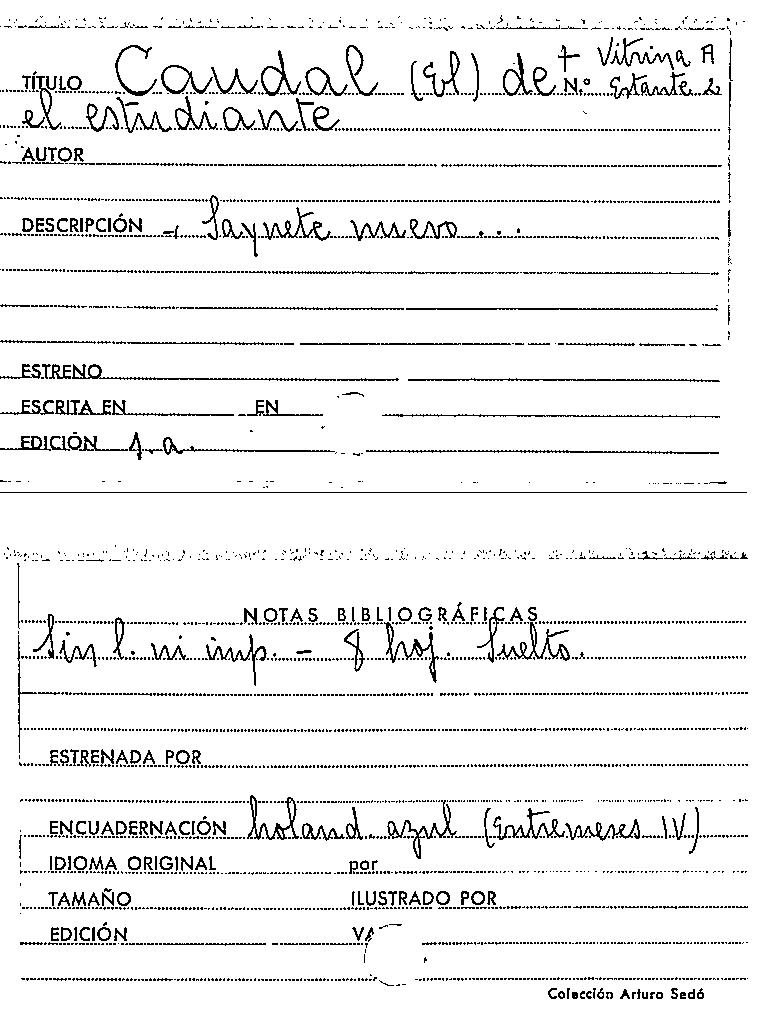 TÍTULO Caudal (El) de + Vitrina A
N.º Estante 2
el estudiante
AUTOR
DESCRIPCIÓN - Saynete nuevo...
ESTRENO
ESCRITA EN EN
EDICIÓN s.a.
NOTAS BIBLIOGRÁFICAS
Sin l. ni imp. - 8 hoj. Suelto.
ESTRENADA POR
ENCUADERNACIÓN holand. azul (Entremeses IV)
IDIOMA ORIGINAL por
TAMAÑO ILUSTRADO POR
EDICIÓN
Colección Arturo Sedó